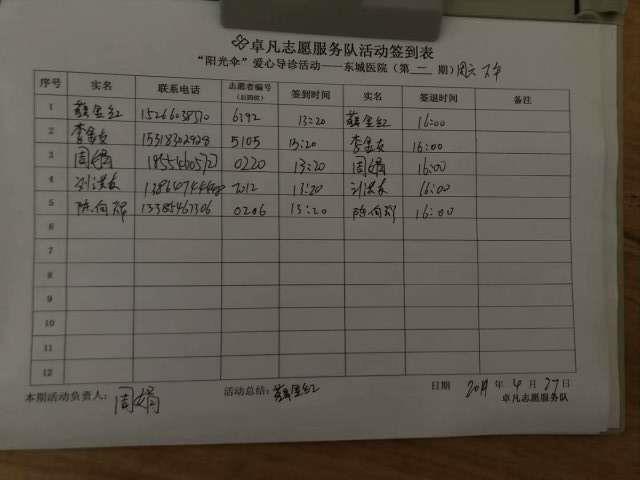 卓凡志愿服务队活动签到表
"阳光伞"爱心导诊活动——东城医院（第 一 期）周六下午
序号 实名 联系电话 志愿者编号（后四位） 签到时间 实名 签退时间 备注
1 蔡金红 6792 13:20 蔡金红 16:00
2 5105 13:20 16:00
3 周娟 0220 13:20 周娟 16:00
4 7212 13:20 16:00
5 陈向群 13385467306 0206 13:20 陈向群 16:00
6
7
8
9
10
11
12
本期活动负责人：周娟 活动总结：蔡金红 日期 2019 年 4 月 27 日
卓凡志愿服务队